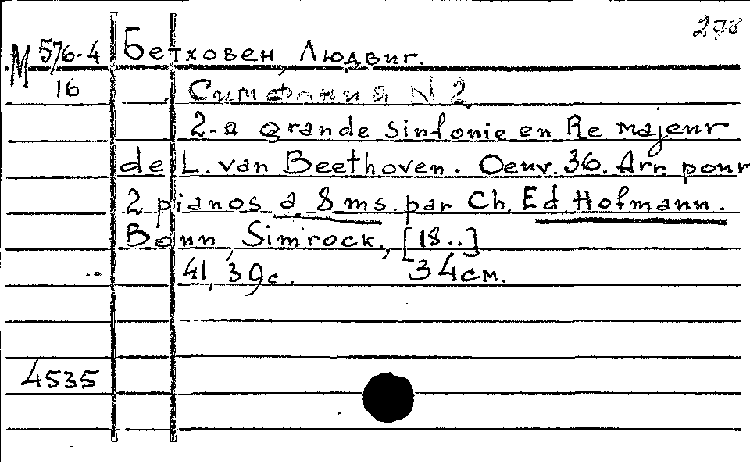 298
М 576-4 Бетховен, Людвиг.
16 Симфония N 2
2-a grande sinfonie en Re majeur
de L. van Beethoven. Oeuv. 36. Arr. pour
2 pianos a 8 ms. par Ch. Ed Hofmann.
Bonn, Simrock., [18..]
41, 39 с. 34 см.
4535